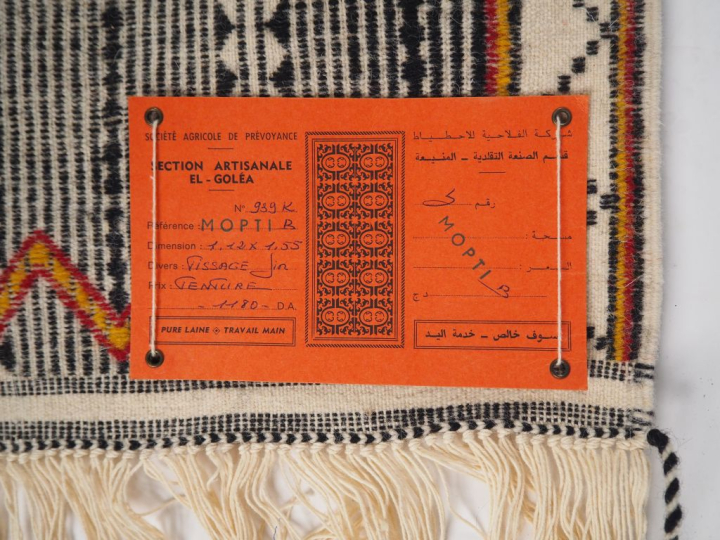 SOCIÉTÉ AGRICOLE DE PRÉVOYANCE
SECTION ARTISANALE
EL - GOLÉA
N° 939 K
Référence : MOPTI B
Dimension : 1.12 x 1.55
Divers : TISSAGE fin
Prix : TENTURE
- 1180 - D.A
PURE LAINE TRAVAIL MAIN
شركة الفلاحية للاحتياط
قسم الصنعة التقلدية - المنيعة
رقم
MOPTI B
دج
صوف خالص - خدمة اليد